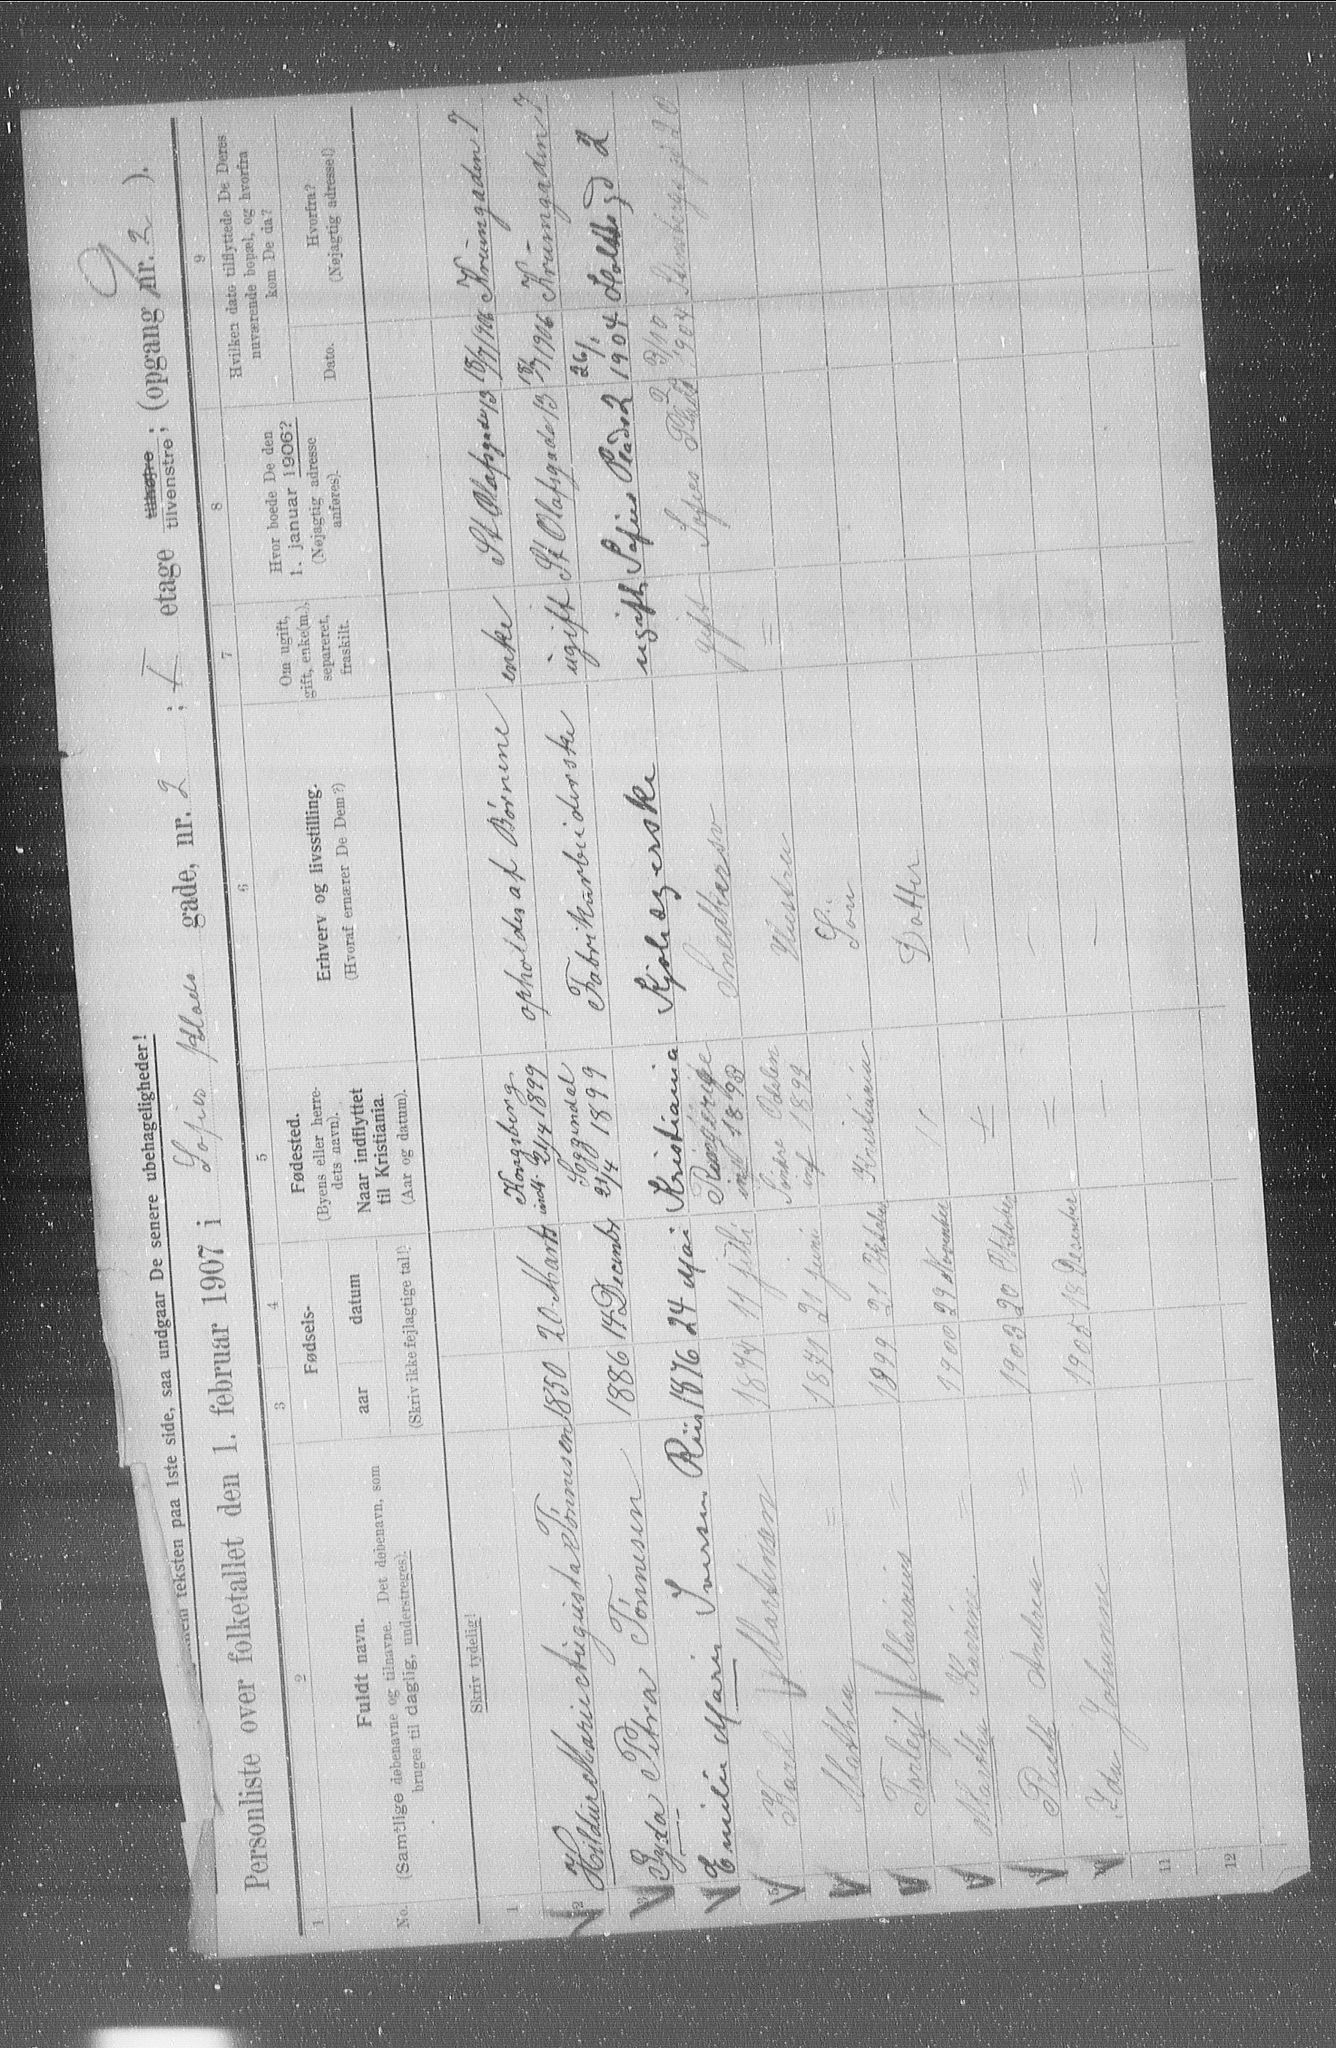 teksten paa 1ste side, saa undgaar De senere ubehageligheder!
Personliste over folketallet den 1. februar 1907 i Sofies Plads gade, nr. 2 ; I etage tilhøjre ; tilvenstre ; (opgang nr. 2 ).
1 2 3 4 5 6 7 8 9
No.
Fuldt navn.
(Samtlige døbenavne og tilnavne. Det døbenavn, som
bruges til daglig, understreges).
Fødsels-
aar datum
(Skriv ikke fejlagtige tal!)
Fødested.
(Byens eller herre-
dets navn).
Naar indflyttet
til Kristiania.
(Aar og datum).
Erhverv og livsstilling.
(Hvoraf ernærer De Dem?)
Om ugift,
gift, enke(m.),
separeret,
fraskilt.
Hvor boede De den
1. januar 1906?
(Nøjagtig adresse
anføres).
Hvilken dato tilflyttede De Deres
nuværende bopæl, og hvorfra
kom De da?
Dato.
Hvorfra?
(Nøjagtig adresse!)
Skriv tydelig!
1
2 Hildur Marie Augusta Tönnesen 1850 20 Marts Kongsberg indfl. 21/4 1899 opholdes af Børnene enke St Olafsgade 13 18/7 1906 Krumgaden 7
Gyda Petra Tönnesen 1886 14 December Soggendal 21/4 1899 Fabrikarbeiderske ugift St Olafsgade 13 18/7 1906 Krumgaden 7
Emilie Marie Iversen Riis 1876 24 Mai Kristiania Kjolesyerske ugift Sofies Plads 2 26/1 1904 Holtes gd 2
Karl Martinsen 11 juli Ringerike 1893 Snedkersv gift Sofies Plads 2 3/10 1904 Stensberggd 20
Mathea = 1871 21 juni Søndre Odalen inf 1899 Hustru =
Torleif Marinius = 1899 21 Oktober Kristiania Søn
Martha Karine = 1900 29 November " Datter
Ruth Andrea = 1903 20 Oktober = —
Ida Johanne = 1905 18 Desember = —
11
12